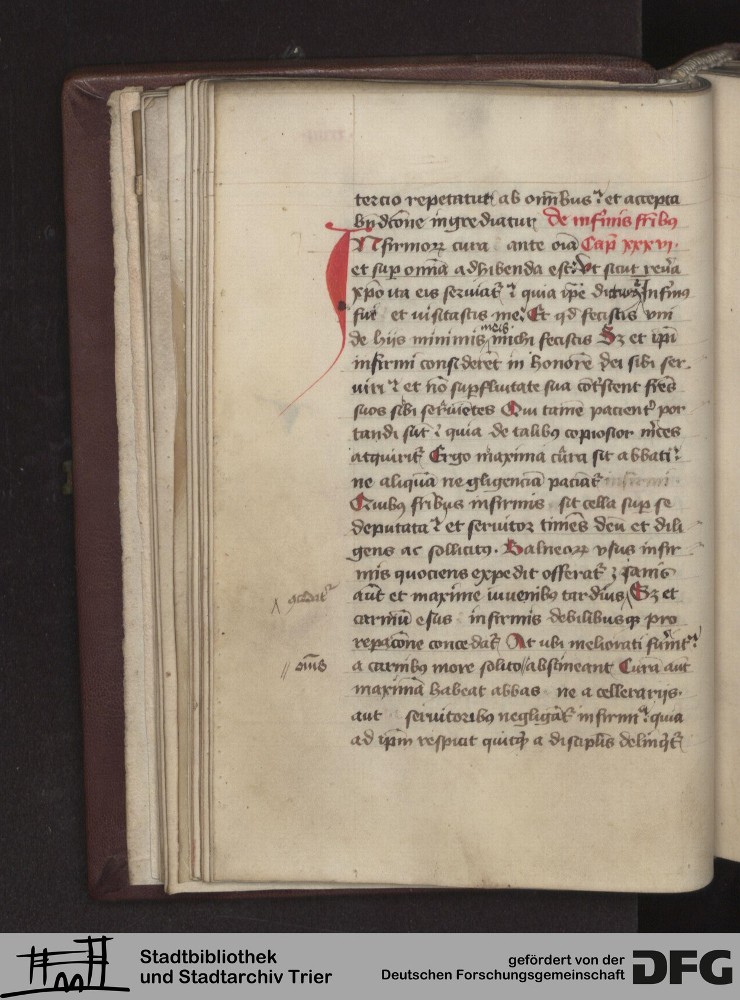 tercio repetatur ab omībus et accepta
bn̄dcōne ingrediatur De infirmis fr̄ibꝯ
Infirmoꝝ cura ante oīa Cap̄ xxxvi.
et sup om̄ia adhibenda est Vt sicut reuā
xpo ita eis seruiat̄ quia ip̄e dicturꝯ Infirmꝯ
fui et visitastis me Et qd fecistis vni
de hijs minimis meis michi fecistis Sꝫ et ip̄i
infirmi considerēt in honorē dei sibi ser
uiri et nō supfluitate sua cōtⁱstent fr̄es
suos sibi seruiētes Qui tamē pacientʳ por
tandi sūt quia de talibꝯ copiosior m̄ces
atquirit̄ Ergo maxima cūra sit abbati
ne aliquā negligenciā paciāt̄ infirmi
Quibꝯ fr̄ibus infirmis sit cella sup se
deputata et seruitor timēs deū et dili
gens ac sollicitꝯ. Balneoꝝ vsus infir
mis quociens expedit offerat̄ sanis
aūt et maxime iuuenibꝯ tardius Sꝫ et
carniū esus infirmis debilibusqꝫ pro
repac̄one concedat̄ At vbi meliorati fuerint
a carnibꝯ more solito // abstineant Cura aut
oīns
maximā habeat abbas ne a cellerarijs
aut seruitoribꝯ negligāt̄ infirmi quia
ad ip̄m respicit quitqꝫ a disciplis delinqⁱt̄
Stadtbibliothek
und Stadtarchiv Trier
gefördert von der
Deutschen Forschungsgemeinschaft
DFG